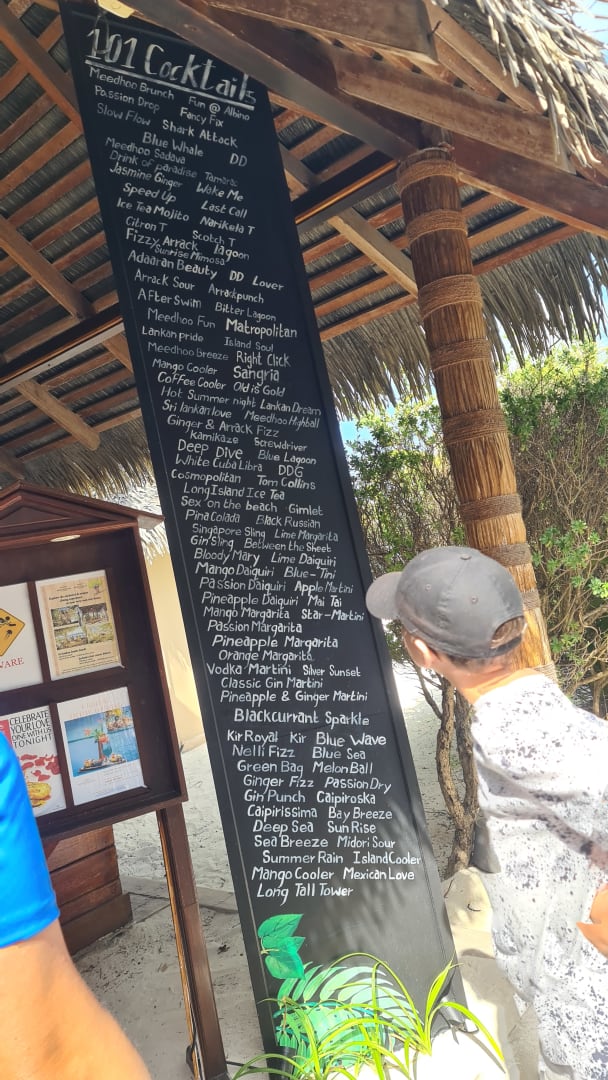 101 Cocktails
Meedhoo Brunch Fun @ Albino
Passion Drop Fancy Fix
Slow Flow Shark Attack
Blue Whale DD
Meedhoo Sadava
Drink of paradise Tamarac
Jasmine Ginger Wake Me
Speed Up Last Call
Ice Tea Molito Narikela T
Citron T Scotch T
Fizzy Arrack lagoon
Sunrise Mimosa
Adaaran Beauty DD Lover
Arrack Sour Arrackpunch
After Swim Bitter Lagoon
Meedhoo Fun Matropolitan
Lankan pride Island Soul
Meedhoo Breeze Right Click
Mango Cooler Sangria
Coffee Cooler Old is Gold
Hot Summer night Lankan Dream
Sri lankan love Meedhoo Highball
Ginger & Arrack Fizz
Kamikaze Screwdriver
Deep Dive Blue Lagoon
White Cuba Libra DDG
Cosmopolitan Tom Collins
Long Island Ice Tea
Sex on the beach Gimlet
Pina Colada Black Russian
Singapore Sling Lime Margarita
Gin Sling Between the Sheet
Bloody Mary Lime Daiquiri
Mango Daiquiri Blue-Tini
Passion Daiquiri Apple Martini
Pineapple Daiquiri Mai Tai
Mango Margarita Star-Martini
Passion Margarita
Pineapple Margarita
Orange Margarita
Vodka Martini Silver Sunset
Classic Gin Martini
Pineapple & Ginger Martini
Blackcurrant Sparkle
Kir Royal Kir Blue Wave
Nelli Fizz Blue Sea
Green Bag Melon Ball
Ginger Fizz Passion Dry
Gin Punch Caipiroska
Caipirissima Bay Breeze
Deep Sea Sun Rise
Sea Breeze Midori Sour
Summer Rain Island Cooler
Mango Cooler Mexican Love
Long Tall Tower
WARE
CELEBRATE
YOUR LOVE
DINE WITH US
TONIGHT